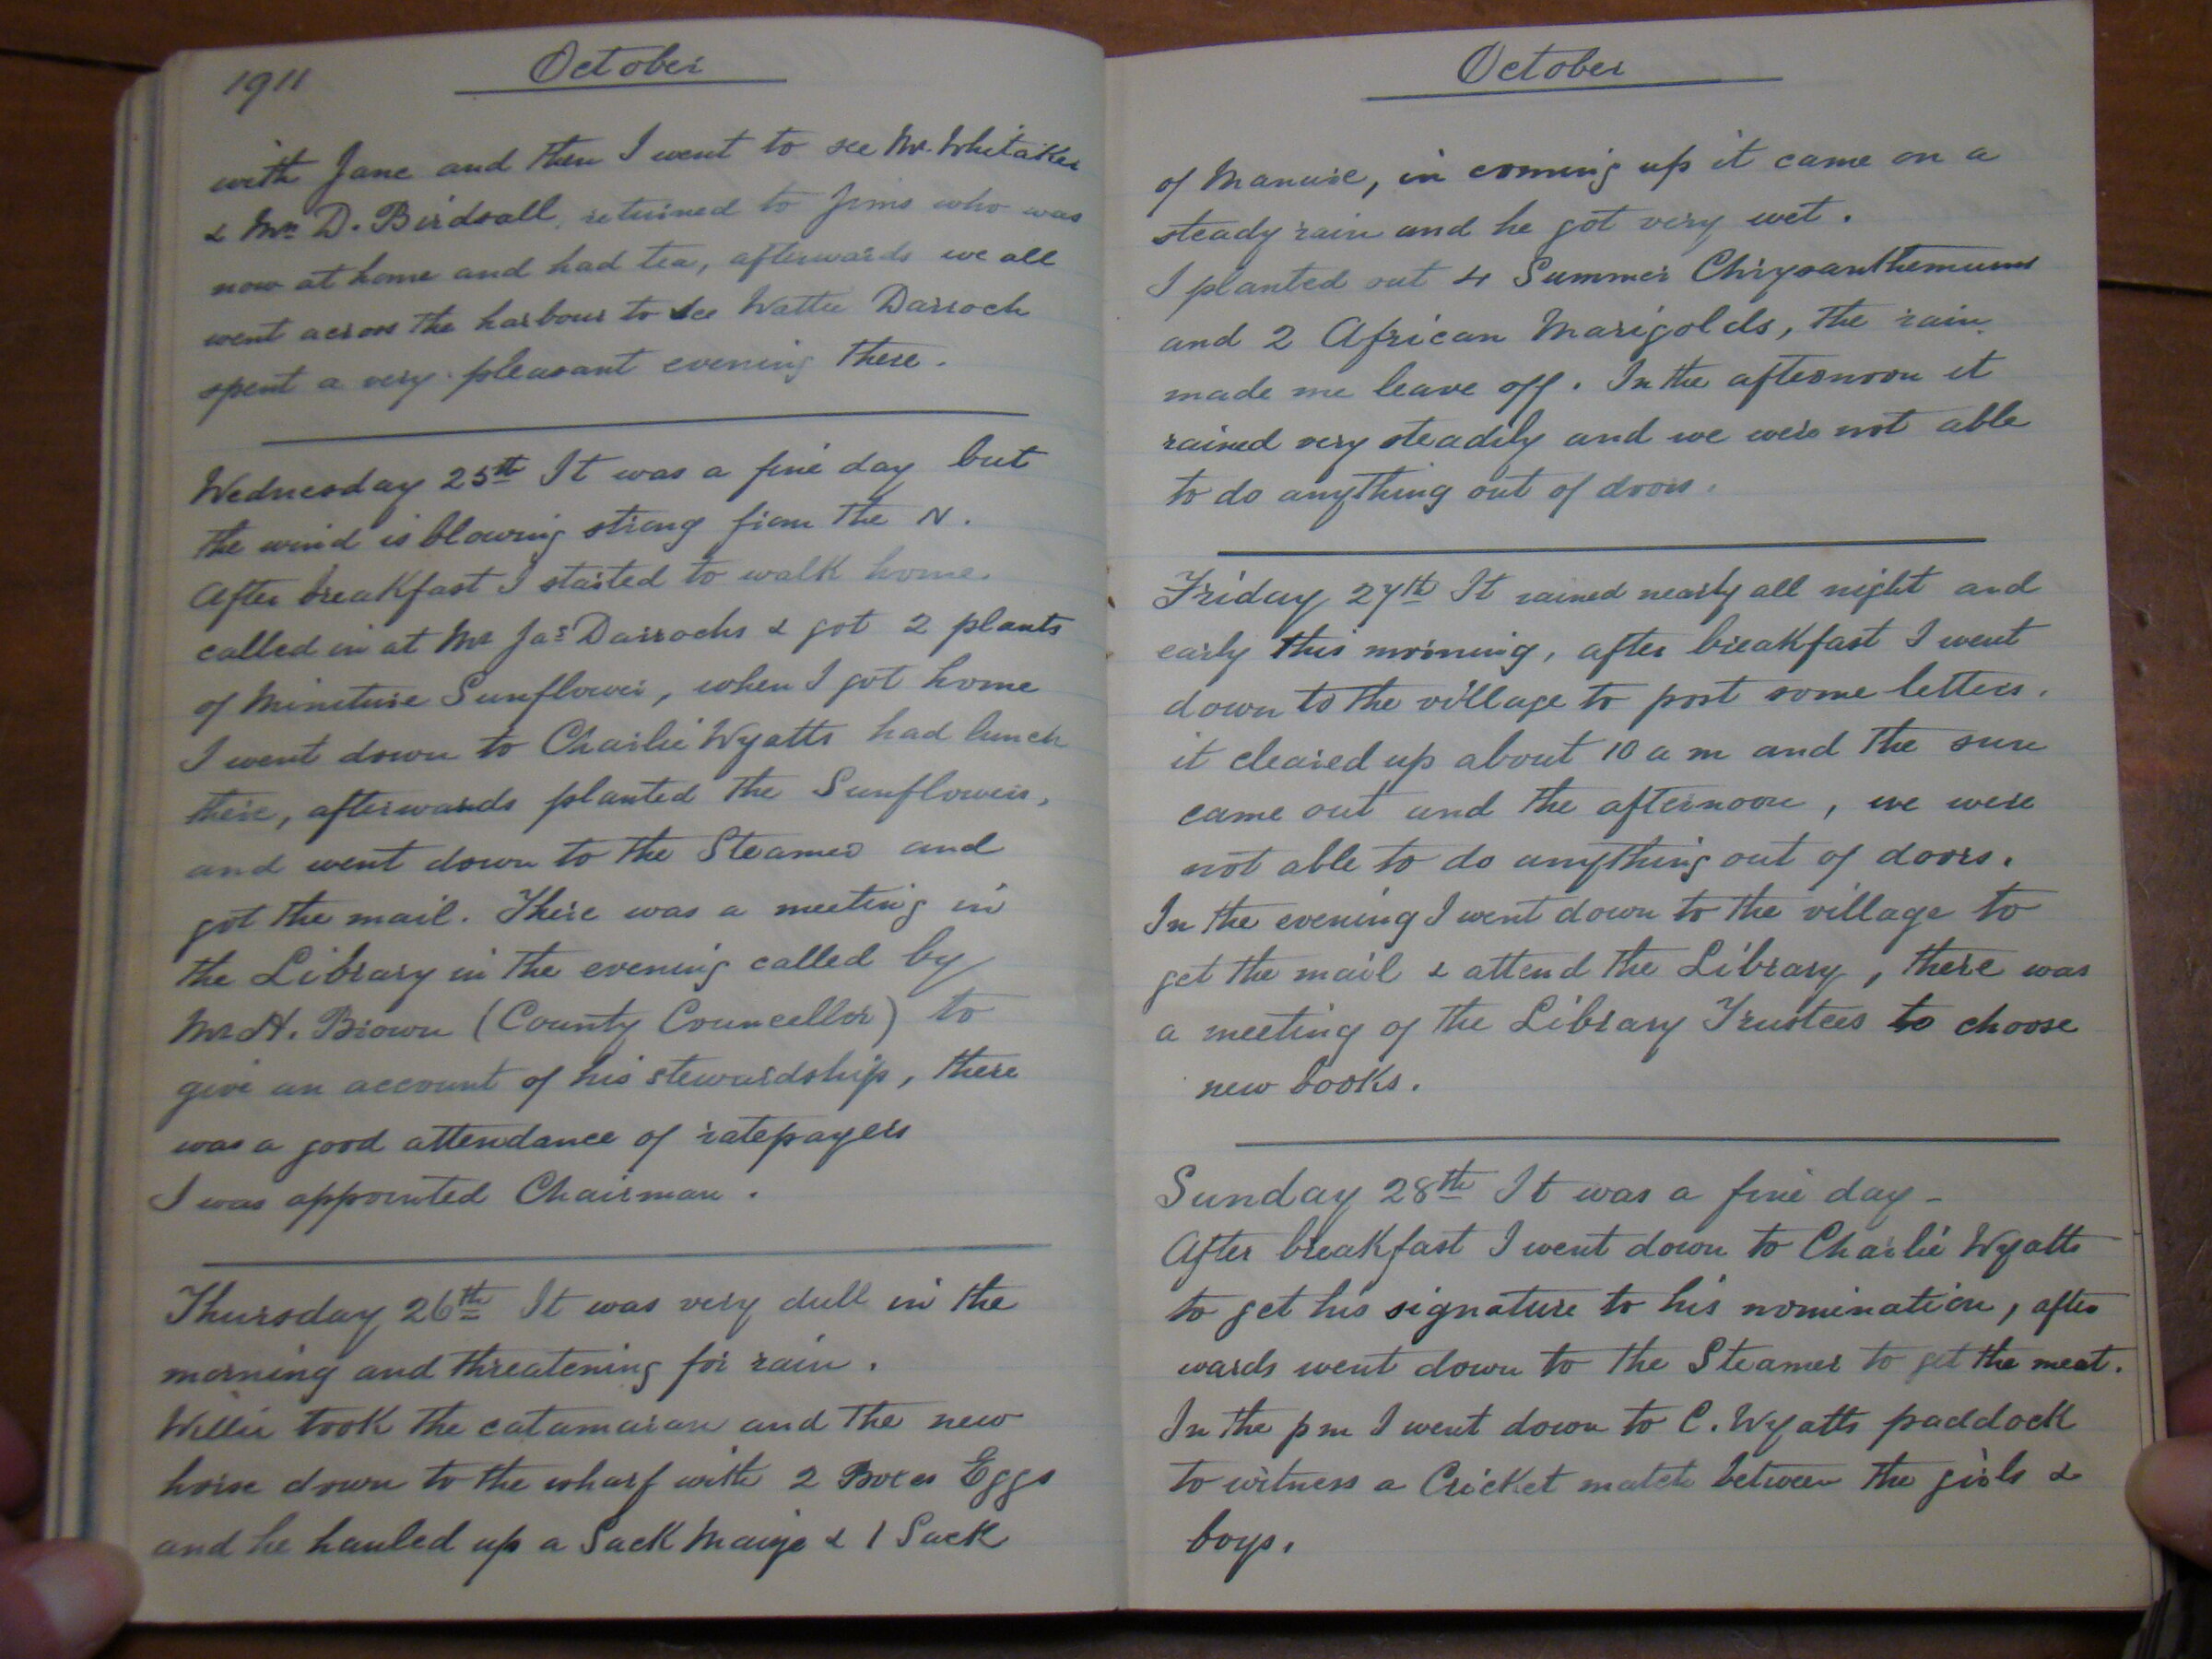 1911 October
with Jane and then I went to see Mr. Whitaker
& Mrs D. Birdsall, returned to Jims who was
now at home and had tea, afterwards we all
went across the harbour to see Wattie Darroch
spent a very pleasant evening there.
Wednesday 25th It was a fine day but
the wind is blowing strong from the N.
After breakfast I started to walk home.
called in at Mr Jas Darrochs & got 2 plants
of Miniture Sunflower, when I got home
I went down to Charlie Wyatts had lunch
there, afterwards planted the Sunflowers,
and went down to the Steamer and
got the mail. There was a meeting in
the Library in the evening called by
Mr H. Brown (County Councellor) to
give an account of his stewardship, there
was a good attendance of ratepayers
I was appointed Chairman.
Thursday 26th It was very dull in the
morning and threatening for rain.
Willie took the catamaran and the new
horse down to the wharf with 2 Boxes Eggs
and he hauled up a Sack Maize & 1 Sack
October
of Manure, in coming up it came on a
steady rain and he got very wet.
I planted out 4 Summer Chrysanthemums
and 2 African Marigolds, the rain
made me leave off. In the afternoon it
rained very steadily and we were not able
to do anything out of doors.
Friday 27th It rained nearly all night and
early this morning, after breakfast I went
down to the village to post some letters.
it cleared up about 10 a m and the sun
came out and the afternoon, we were
not able to do anything out of doors.
In the evening I went down to the village to
get the mail & attend the Library, there was
a meeting of the Library Trustees to choose
new books.
Sunday 28th It was a fine day -
After breakfast I went down to Charlie Wyatts
to get his signature to his nomination, after
wards went down to the Steamer to get the meat.
In the pm I went down to C. Wyatts paddock
to witness a Cricket match between the girls &
boys.